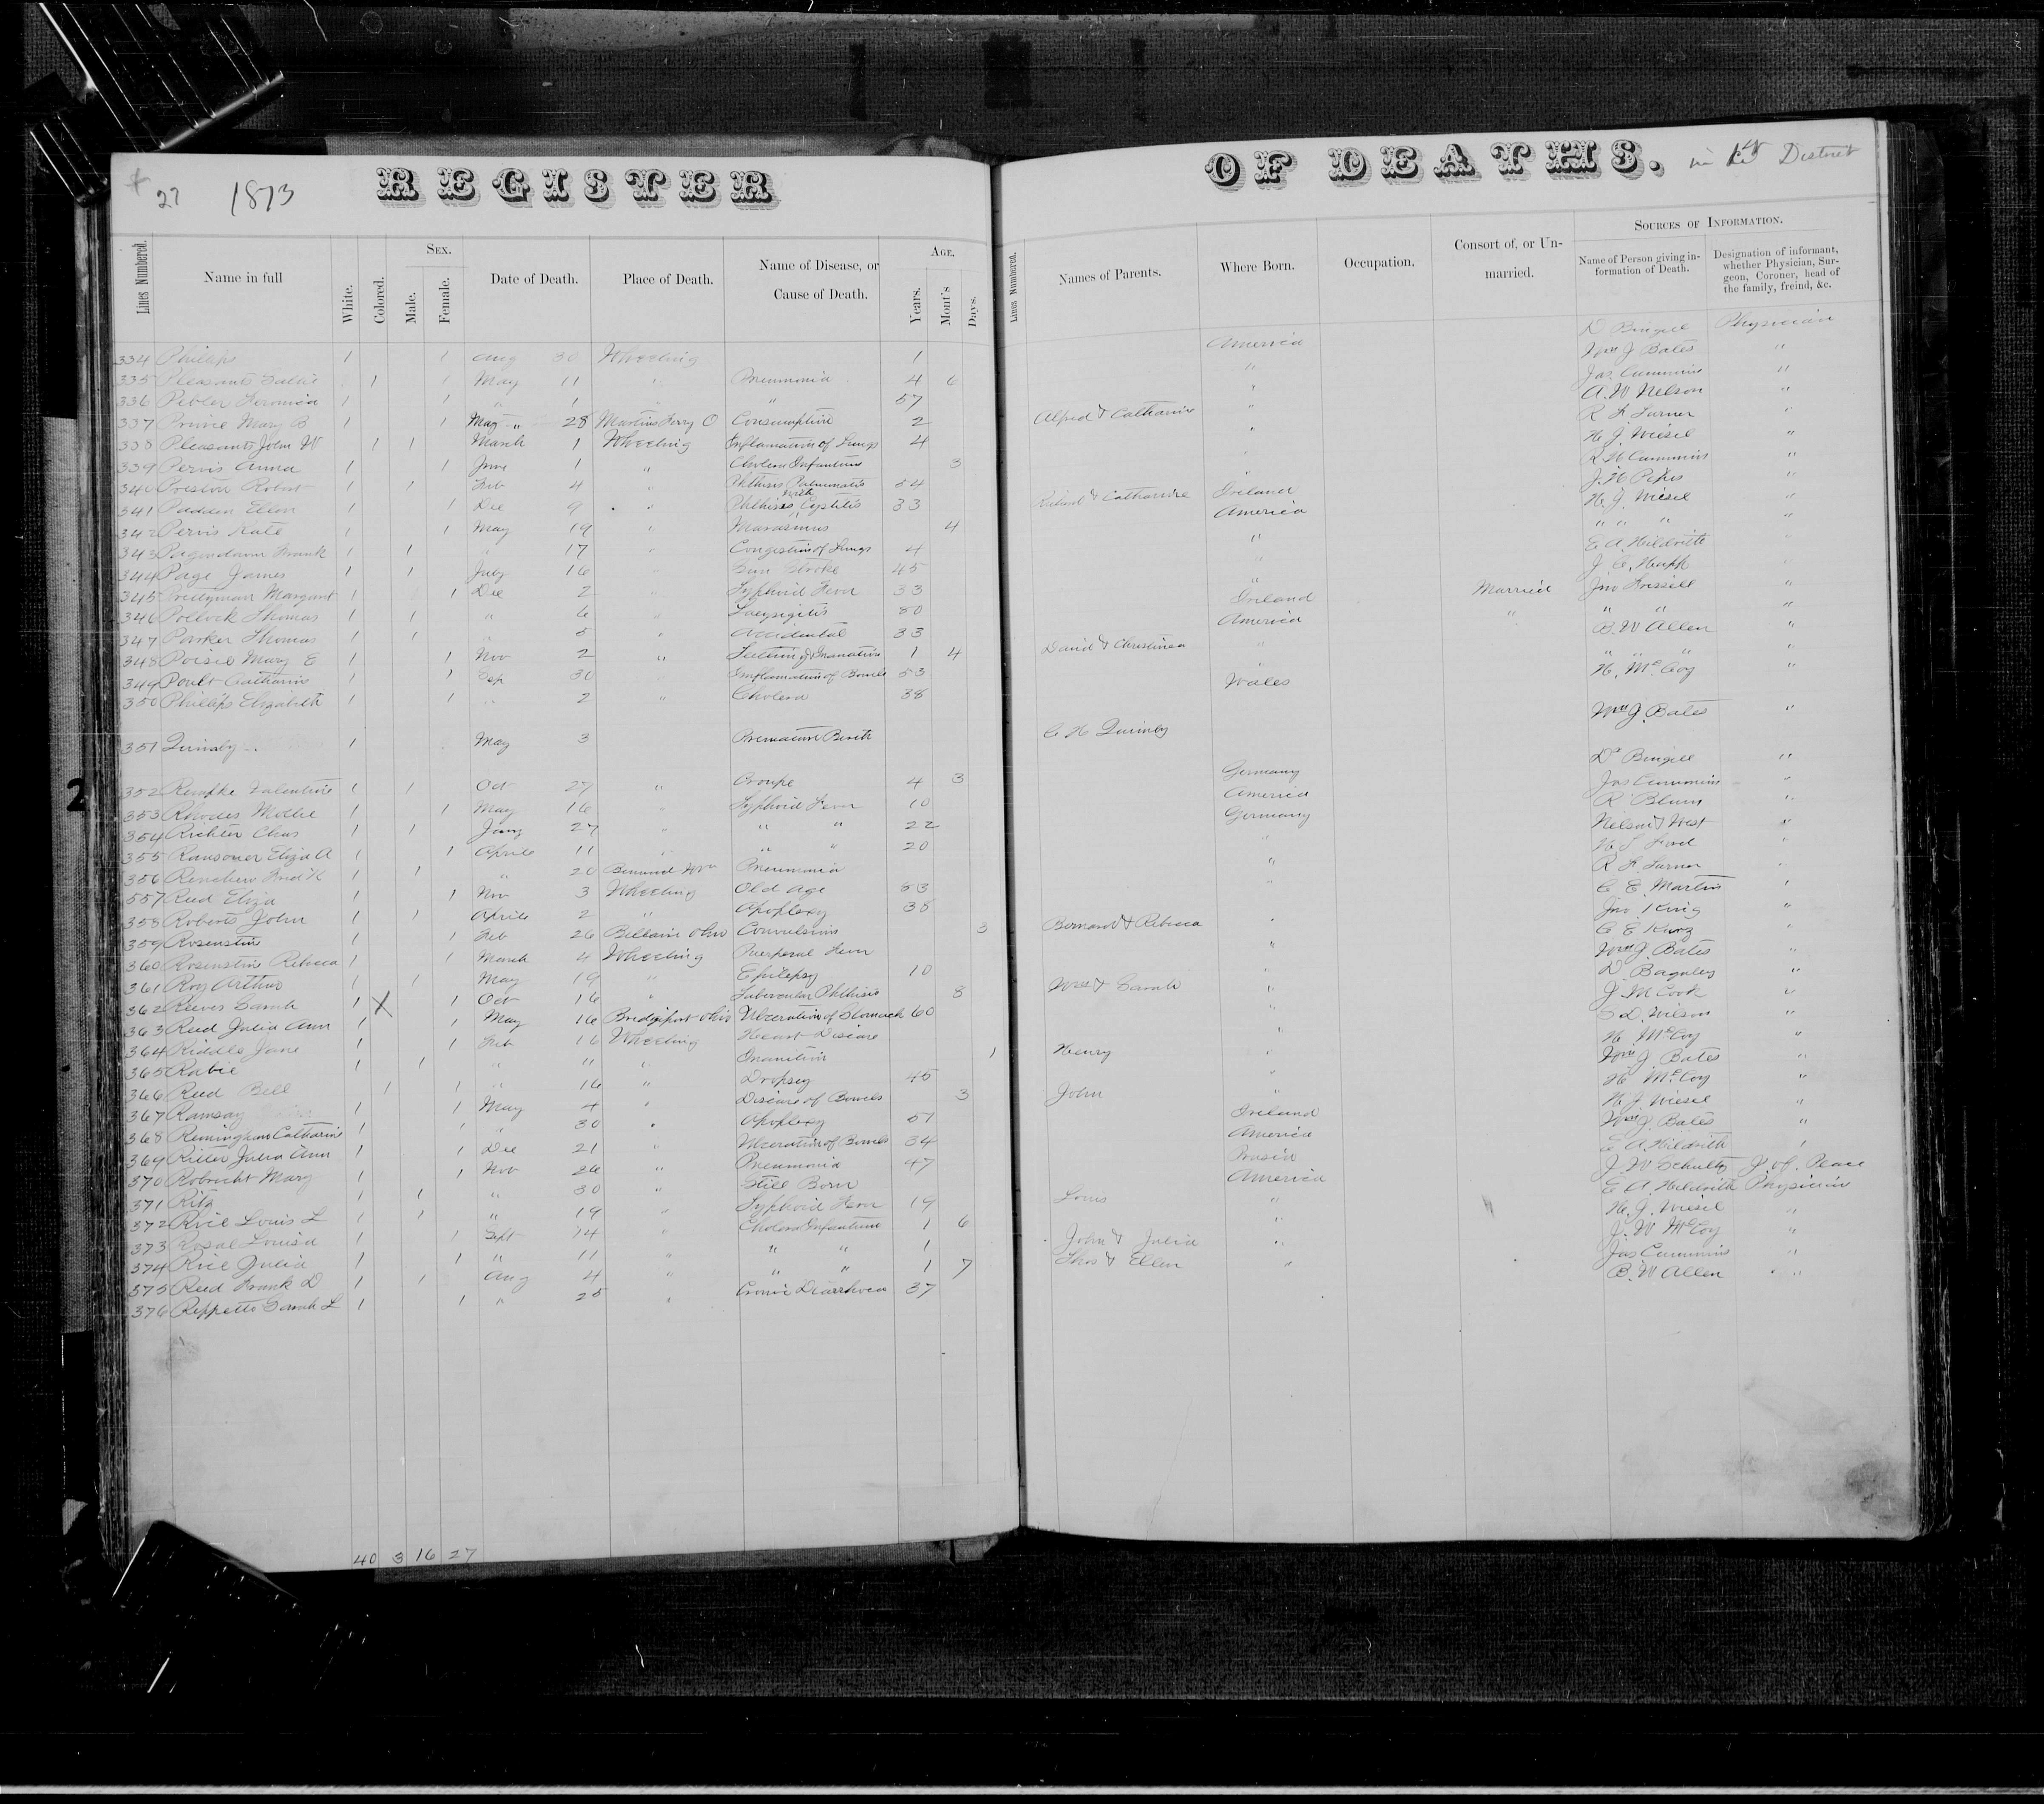 27 1873 REGISTER OF DEATHS. in 1st District
Lines Numbered. Name in full White. Colored. Sex. Male. Female. Date of Death. Place of Death. Name of Disease, or Cause of Death. Age. Years. Mont's Days. Lines Numbered. Names of Parents. Where Born. Occupation. Consort of, or Unmarried. Sources of Information. Name of Person giving information of Death. Designation of informant, whether Physician, Surgeon, Coroner, head of the family, freind, &c.
334 Philips 1 1 Aug 30 Wheeling 1 America D Bingell Physician
335 Pleasants Sallie 1 1 May 11 " Pneumonia 4 6 " Wm J Bates "
336 Pebler Feronica 1 1 " 1 " " 57 " Jas Cummins "
337 Prince Mary B 1 1 May " 28 Martins Ferry O Consumption 2 Alfred & Catharine " A. W Nelson "
338 Pleasants John W 1 1 March 1 Wheeling Inflamation of Lungs 4 " R F Turner "
339 Pervis Anna 1 1 June 1 " Cholera Infantum 3 " H. J. Wiesel "
340 Preston Robert 1 1 Feb 4 " Phthisis Pulmonalis 54 " R H Cummins "
341 Padden Ellen 1 1 Dec 9 " Phthisis with Cystitis 33 & Catharine Ireland J. H Pipes "
342 Pervis Kate 1 1 May 19 " Marasmus 4 America H. J. Wiesel "
343 Frank 1 1 " 17 " Congestion of Lungs 4 " " " " "
344 Page James 1 1 July 16 " Sun Stroke 45 " E. A. Hildreth "
345 Pridyman Margaret 1 1 Dec 2 " Typhoid Fever 33 " J. C. Hupp "
346 Pollock Thomas 1 1 " 6 " 80 Ireland Married Jno Frissell "
347 Parker Thomas 1 1 " 5 " Accidental 33 America " " " "
348 Mary E 1 1 Nov 2 " 1 4 David & Christinea " B. W Allen "
349 Poult Catharine 1 1 Sep 30 " Inflamation of Bowels 53 " " " " "
350 Phillips Elizabeth 1 1 " 2 " Cholera 38 Wales H. McCoy "
351 Quimby 1 May 3 Premature Birth C H Quimby Wm J. Bates "
352 Rempke Valentine 1 1 Oct 27 " Croupe 4 3 Germany Dr Bingell "
353 Rhodes Mollie 1 1 May 16 " Typhoid Fever 10 America Jas Cummins "
354 Richter Chas 1 1 Jany 27 " " " 22 Germany R Blum "
355 Ransomer Eliza A 1 1 Aprile 11 " " " 20 " Nelson & West "
356 Fred K 1 1 " 20 Benwood Pneumonia " H S Ford "
357 Reed Eliza 1 1 Nov 3 Wheeling Old Age 83 " R F. Turner "
358 Roberts John 1 1 Aprile 2 " Apoplexy 38 " C E. Martin "
359 Rosenstine 1 1 Feb 26 Bellaire Ohio Convulsions 3 Bernard & Rebecca " Jno. King "
360 Rosenstine Rebecca 1 1 March 4 Wheeling Puerperal Fever " C E Kurz "
361 Roy Arthur 1 1 May 19 " Epilepsy 10 " Wm J. Bates "
362 Reeves Sarah 1 X 1 Oct 16 " Tubercular Phthisis 8 Wm & Sarah " D. Bagnley "
363 Reed Julia Ann 1 1 May 16 Bridgeport Ohio Ulceration of Stomach 60 " J. M Cook "
364 Riddle Jane 1 1 Feb 16 Wheeling Heart Disease " S D. Wilson "
365 Rabie 1 1 " " " Inanition 1 Henry " H. McCoy "
366 Reed Bell 1 1 " 16 " Dropsey 45 " Wm J. Bates "
367 Ramsay 1 1 May 4 " Disease of Bowels 3 John " H McCoy "
368 Remingham Catharine 1 1 " 30 " Apoplexy 51 Ireland H. J. Wiesel "
369 Ritter Julia Ann 1 1 Dec 21 " Ulceration of Bowels 34 America Wm J. Bates "
370 Robrecht Mary 1 1 Nov 26 " Pneumonia 47 Prusia E A. Hildrith "
371 Ritz 1 1 " 30 " Still Born Louis America J. W Schultz J. of. Peace
372 Rice Louis L 1 1 " 19 " Typhoid Fever 19 " E A. Hildrith Physician
373 Rosal Louisa 1 1 Sept 14 " Cholera Infantum 1 6 John & Julia " H. J. Wiesel "
374 Rice Julia 1 1 " 11 " " " 1 Thos & Ellen " J. W McCoy "
375 Reed Frank D 1 1 Aug 4 " " " 1 7 " Jas Cummins "
376 Reppetto Sarah L 1 1 " 25 " Cronic Diarrhoea 37 B. W Allen "
40 3 16 27